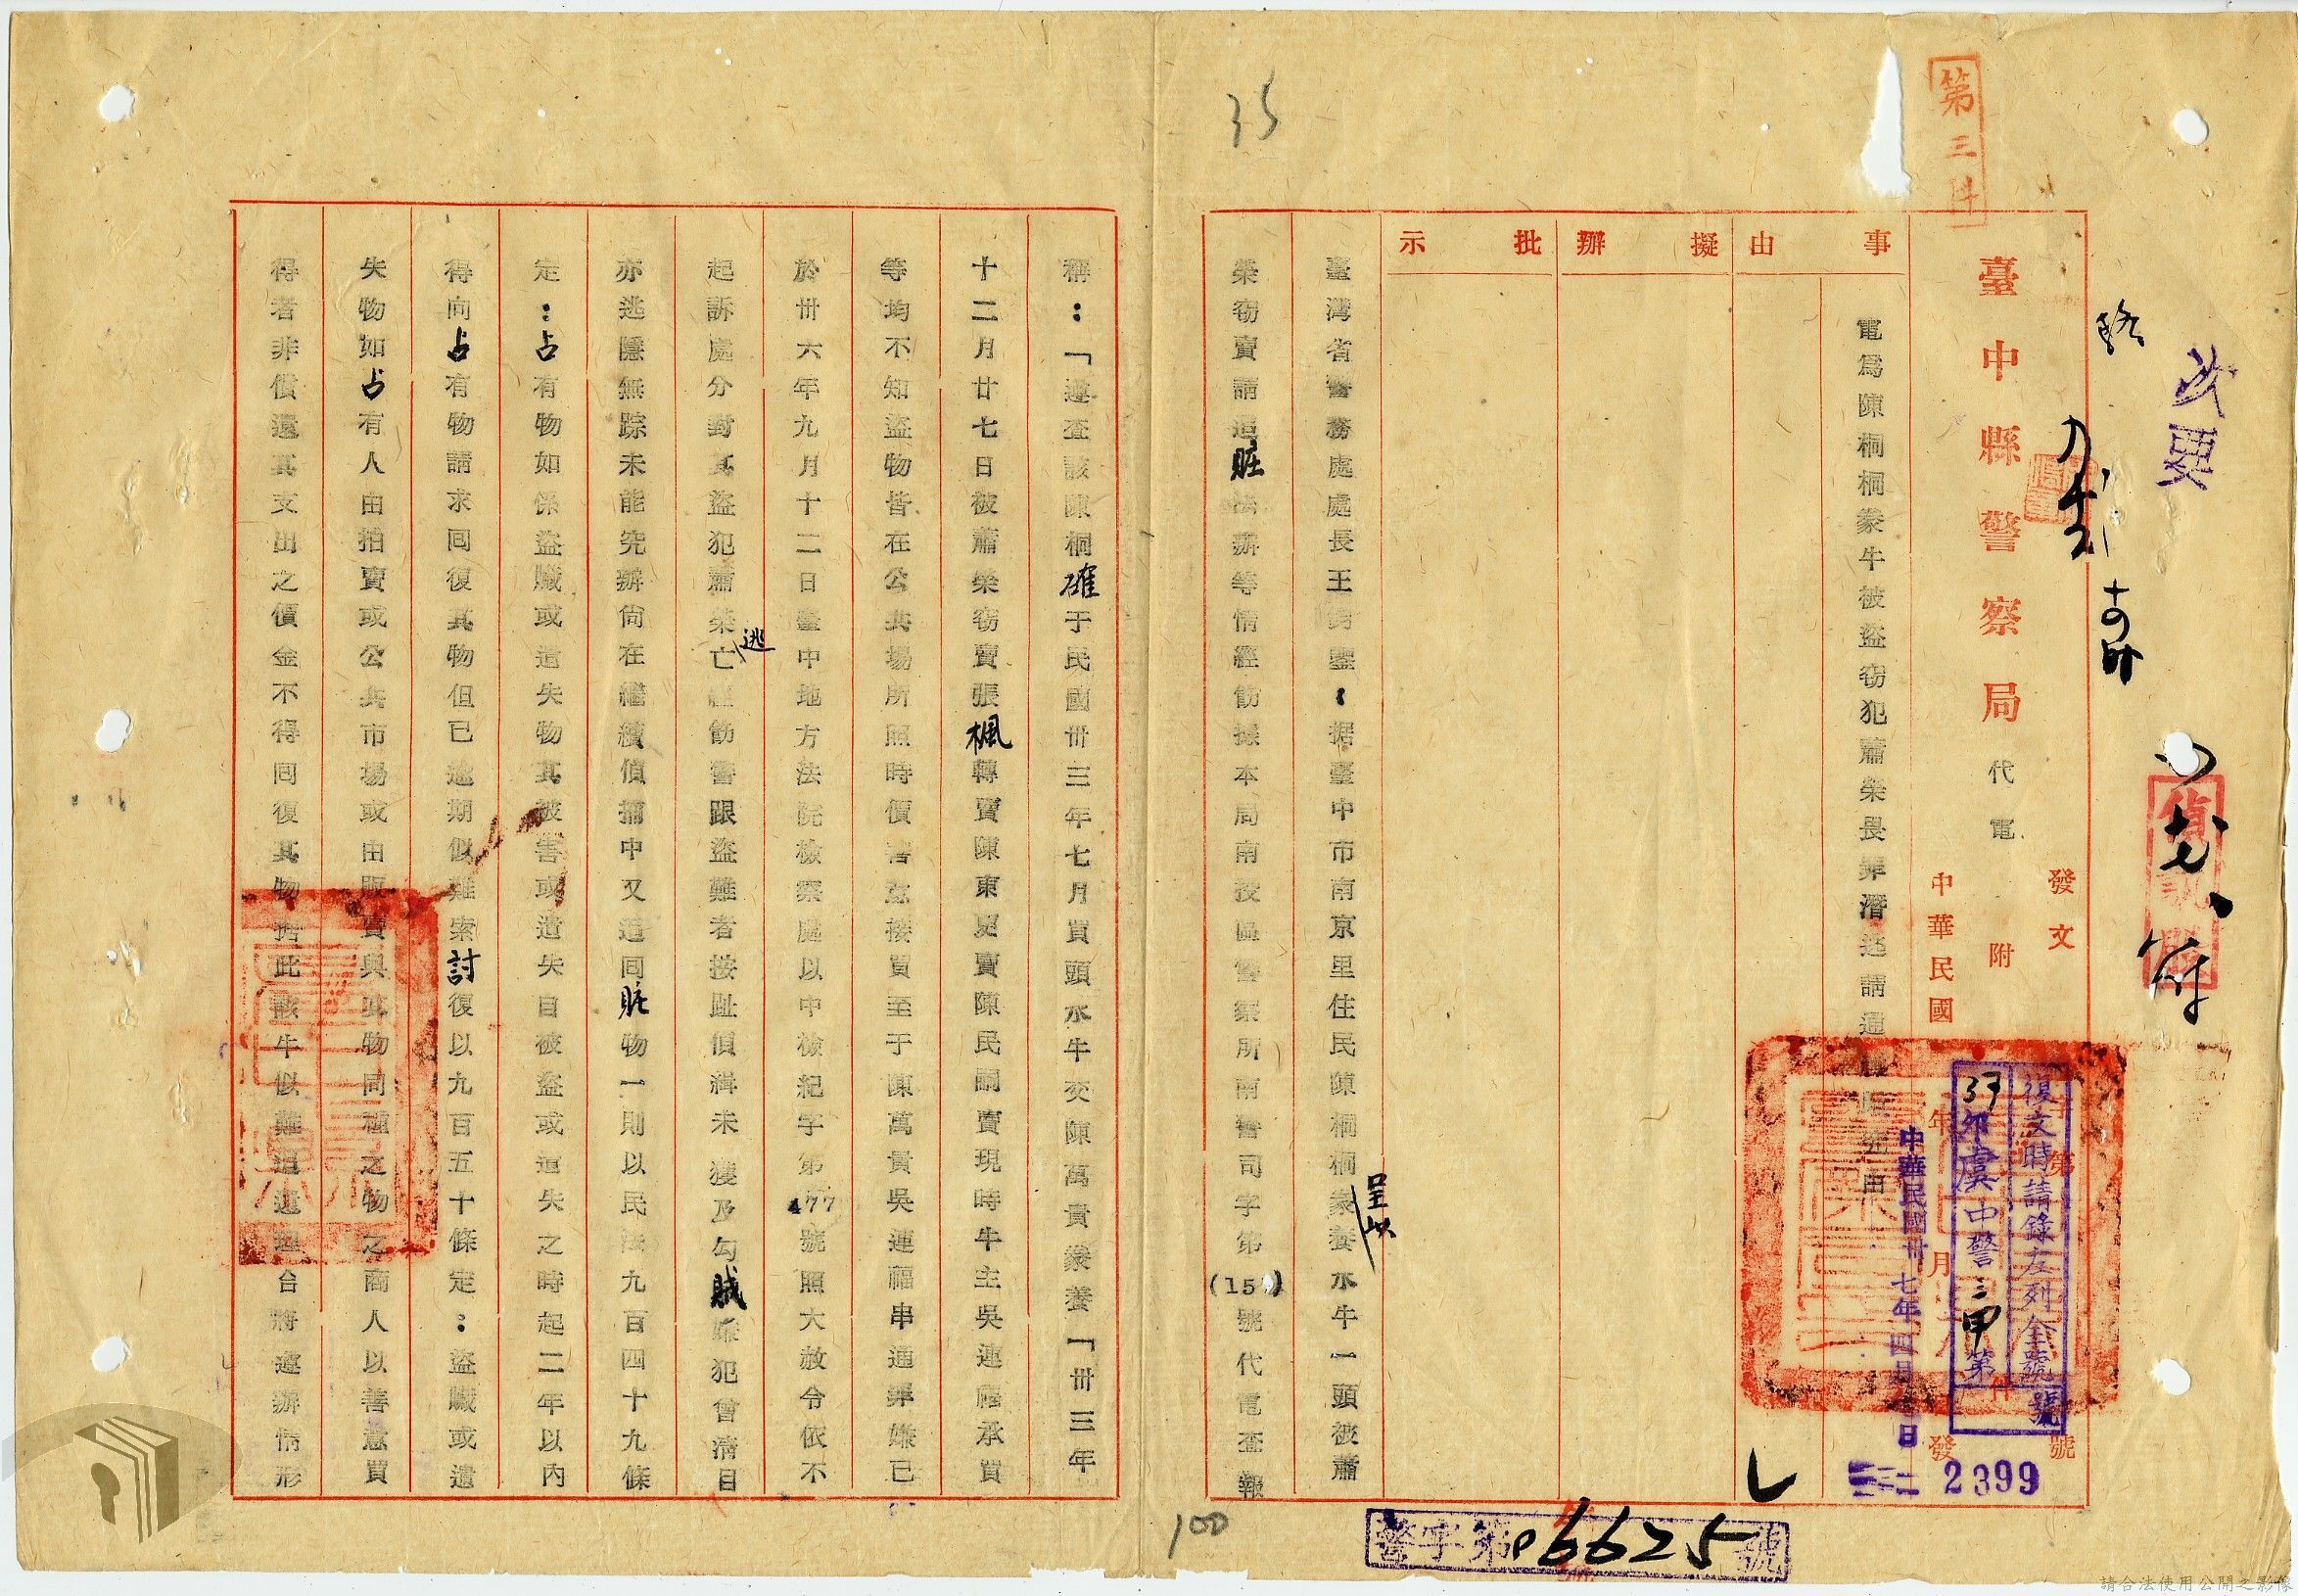 第三件
35
次要
臺中縣警察局
代電
附
發文
第
號
中華民國
年
月
發
復文時請錄左列全號
37卯虞中警三甲第
號
中華民國卅七年四月
日
2399
事由
擬辦
批示
電為陳桐桐豢牛被盜竊犯蕭榮畏罪潛逃請通
由
臺灣省警務處處長王鈞鑒：据臺中市南京里住民陳桐桐呈以豢養水牛一頭被蕭
榮窃賣請追賍法辦等情經飭據本局南投區警察所南警司字第(15)號代電查報
稱：「遵查該陳桐確于民國卅三年七月買頭水牛交陳萬貴豢養「卅三年
十二月廿七日被蕭榮窃賣張楓轉賣陳東更賣陳民嗣賣現時牛主吳連福承買
等均不知盜物皆在公共場所照時價善意接買至于陳萬貴吳連福串通罪嫌已
於卅六年九月十二日臺中地方法院檢察處以中檢紀字第477號照大赦令依不
起訴處分對其盜犯蕭榮逃亡經飭警跟盜難者按趾偵緝未獲及勾賊嫌犯曾清目
亦逃隱無踪未能究辦尚在繼續偵捕中又追回賍物一則以民法九百四十九條
定：占有物如係盜贓或遺失物其被害或遺失自被盜或遺失之時起二年以內
得向占有物請求回復其物但已逾期似難索討復以九百五十條定：盜贓或遺
失物如占有人由拍賣或公共市場或由販賣與其物同種之物之商人以善意買
得者非償還其支出之價金不得回復其物据此該牛似難追還理合將遵辦情形
100
警字第06625號
請合法使用公開之影像